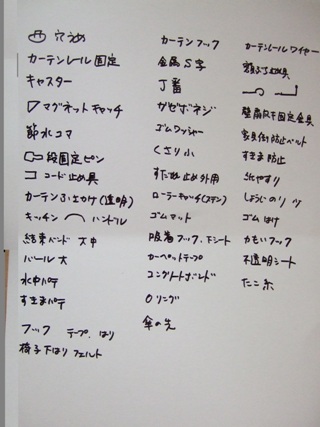 穴うめ
カーテンレール固定
キャスター
マグネットキャッチ
節水コマ
段固定ピン
コード止め具
カーテンふさかけ(透明)
キッチン ハンドル
結束バンド 大中
バール大
水中パテ
すきまパテ
フック テープ、はり
椅子下はりフェルト
カーテンフック
金属S字
丁番
ガゼボネジ
ゴムワッシャー
くさり小
すだれ止め外用
ローラーキャッチ(ステン)
ゴムマット
吸着フック、下シート
カーペットテープ
コンクリートボンド
Oリング
傘の先
カーテンレールワイヤー
額ぶち金具
固定金具
家具倒防止ベルト
すきま防止
紙ヤスリ
しょうじのり
ゴムはけ
かもいフック
不透明シート
たこ糸